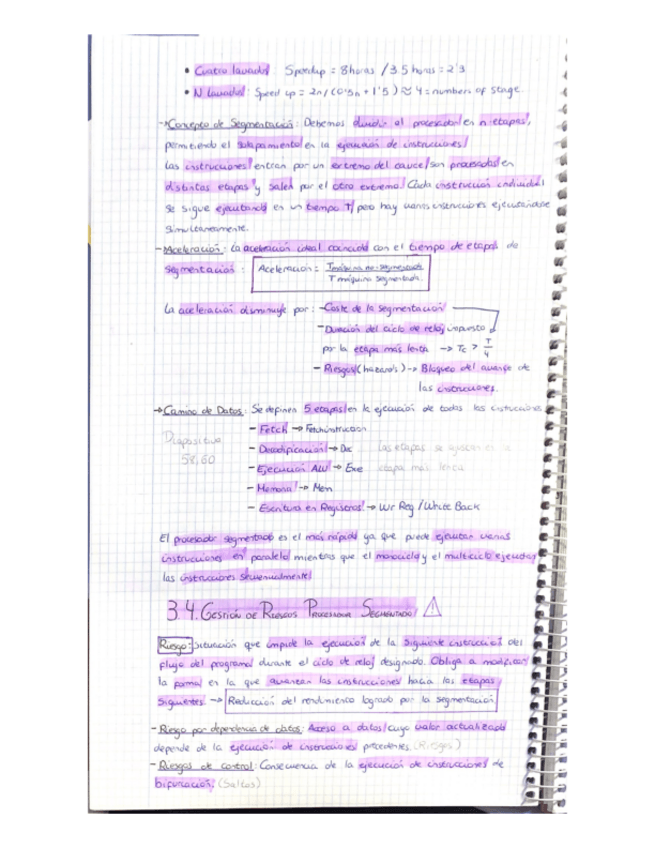 • Cuatro lavados: Speedup = 8 horas / 3'5 horas = 2'3
• N lavados: Speed up = 2n / (0'5n + 1'5) ≈ 4 = numbers of stage.
→ Concepto de Segmentación: Debemos dividir al procesador en n etapas,
permitiendo el solapamiento en la ejecución de instrucciones
Las instrucciones entran por un extremo del cauce, son procesadas en
distintas etapas y salen por el otro extremo. Cada instrucción individual
se sigue ejecutando en un tiempo T, pero hay varias instrucciones ejecutándose
simultaneamente.
- Aceleración: La aceleración ideal coincide con el tiempo de etapas de
segmentación: Aceleración = T máquina no-segmentada / T máquina segmentada
La aceleración disminuye por: - Coste de la segmentación
- Duración del ciclo de reloj impuesto
por la etapa más lenta → Tc > T/4
- Riesgos (hazards) → Bloqueo del avance de
las instrucciones.
→ Camino de Datos: Se definen 5 etapas en la ejecución de todas las instrucciones
Diapositiva
58,60
- Fetch → Fetch instruction
- Decodificación → Dec
Las etapas se ajustan a la
- Ejecución ALU → Exe
etapa más lenta
- Memoria → Mem
- Escritura en Registros → Wr Reg / White Back
El procesador segmentado es el más rápido ya que puede ejecutar varias
instrucciones en paralelo mientras que el monociclo y el multiciclo ejecutan
las instrucciones secuencialmente
3.4. Gestión de Riesgos Procesador Segmentado
Riesgo: Situación que impide la ejecución de la siguiente instrucción del
flujo del programa durante el ciclo de reloj designado. Obliga a modificar
la forma en la que avanzan las instrucciones hacia las etapas
siguientes → Reducción del rendimiento logrado por la segmentación
- Riesgo por dependencia de datos: Acceso a datos cuyo valor actualizado
depende de la ejecución de instrucciones precedentes (Riesgos)
- Riesgos de control: Consecuencia de la ejecución de instrucciones de
bifurcación. (Saltos)